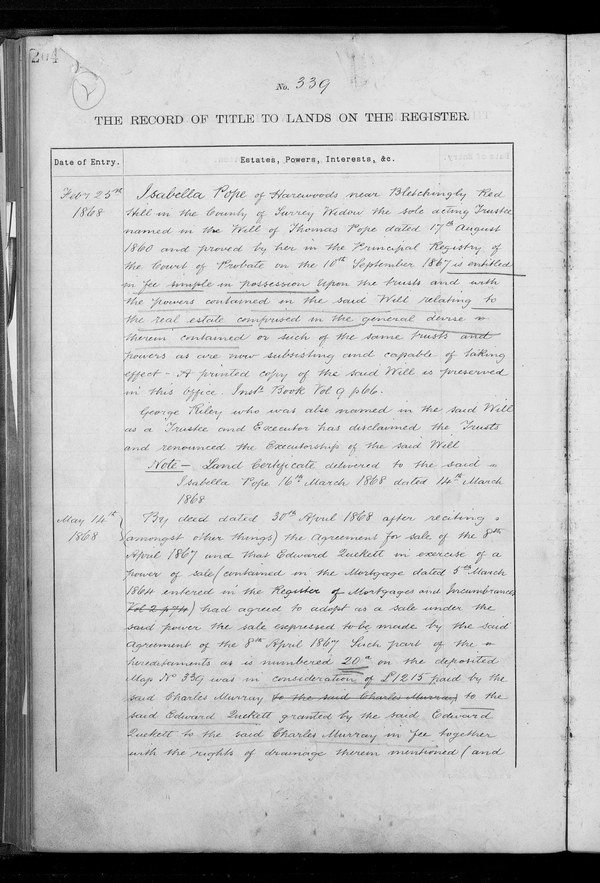 204
No. 339
THE RECORD OF TITLE TO LANDS ON THE REGISTER.
Date of Entry.
Estates, Powers, Interests, &c.
Feby 25th 1868
Isabella Pope of Harewoods near Bletchingly Red
Hill in the County of Surrey Widow the sole acting Trustee
named in the Will of Thomas Pope dated 17th August
1860 and proved by her in the Principal Registry of
the Court of Probate on the 10th September 1867 is entitled
in fee simple in possession upon the trusts and with
the powers contained in the said Will relating to
the real estate comprised in the general devise
therein contained or such of the same trusts and
powers as are now subsisting and capable of taking
effect - A printed copy of the said Will is preserved
in this office Inst. Book Vol 9 p 66.
George Riley who was also named in the said Will
as a Trustee and Executor has disclaimed the Trusts
and renounced the Executorship of the said Will
Note - Land Certificate delivered to the said
Isabella Pope 16th March 1868 dated 14th March
1868
May 14th 1868
By deed dated 30th April 1868 after reciting
amongst other things) the agreement for sale of the 8th
April 1867 and that Edward Quekett in exercise of a
power of sale (contained in the Mortgage dated 5th March
1864 entered in the Register of Mortgages and Incumbrances
Vol 2 p 74) had agreed to adopt as a sale under the
said power the sale expressed to be made by the said
agreement of the 8th April 1867 Such part of the
hereditaments as is numbered 20a on the deposited
Map No 339 was in consideration of £1215 paid by the
said Charles Murray to the said Charles Murray) to the
said Edward Quekett granted by the said Edward
Quekett to the said Charles Murray in fee together
with the rights of drainage therein mentioned (and